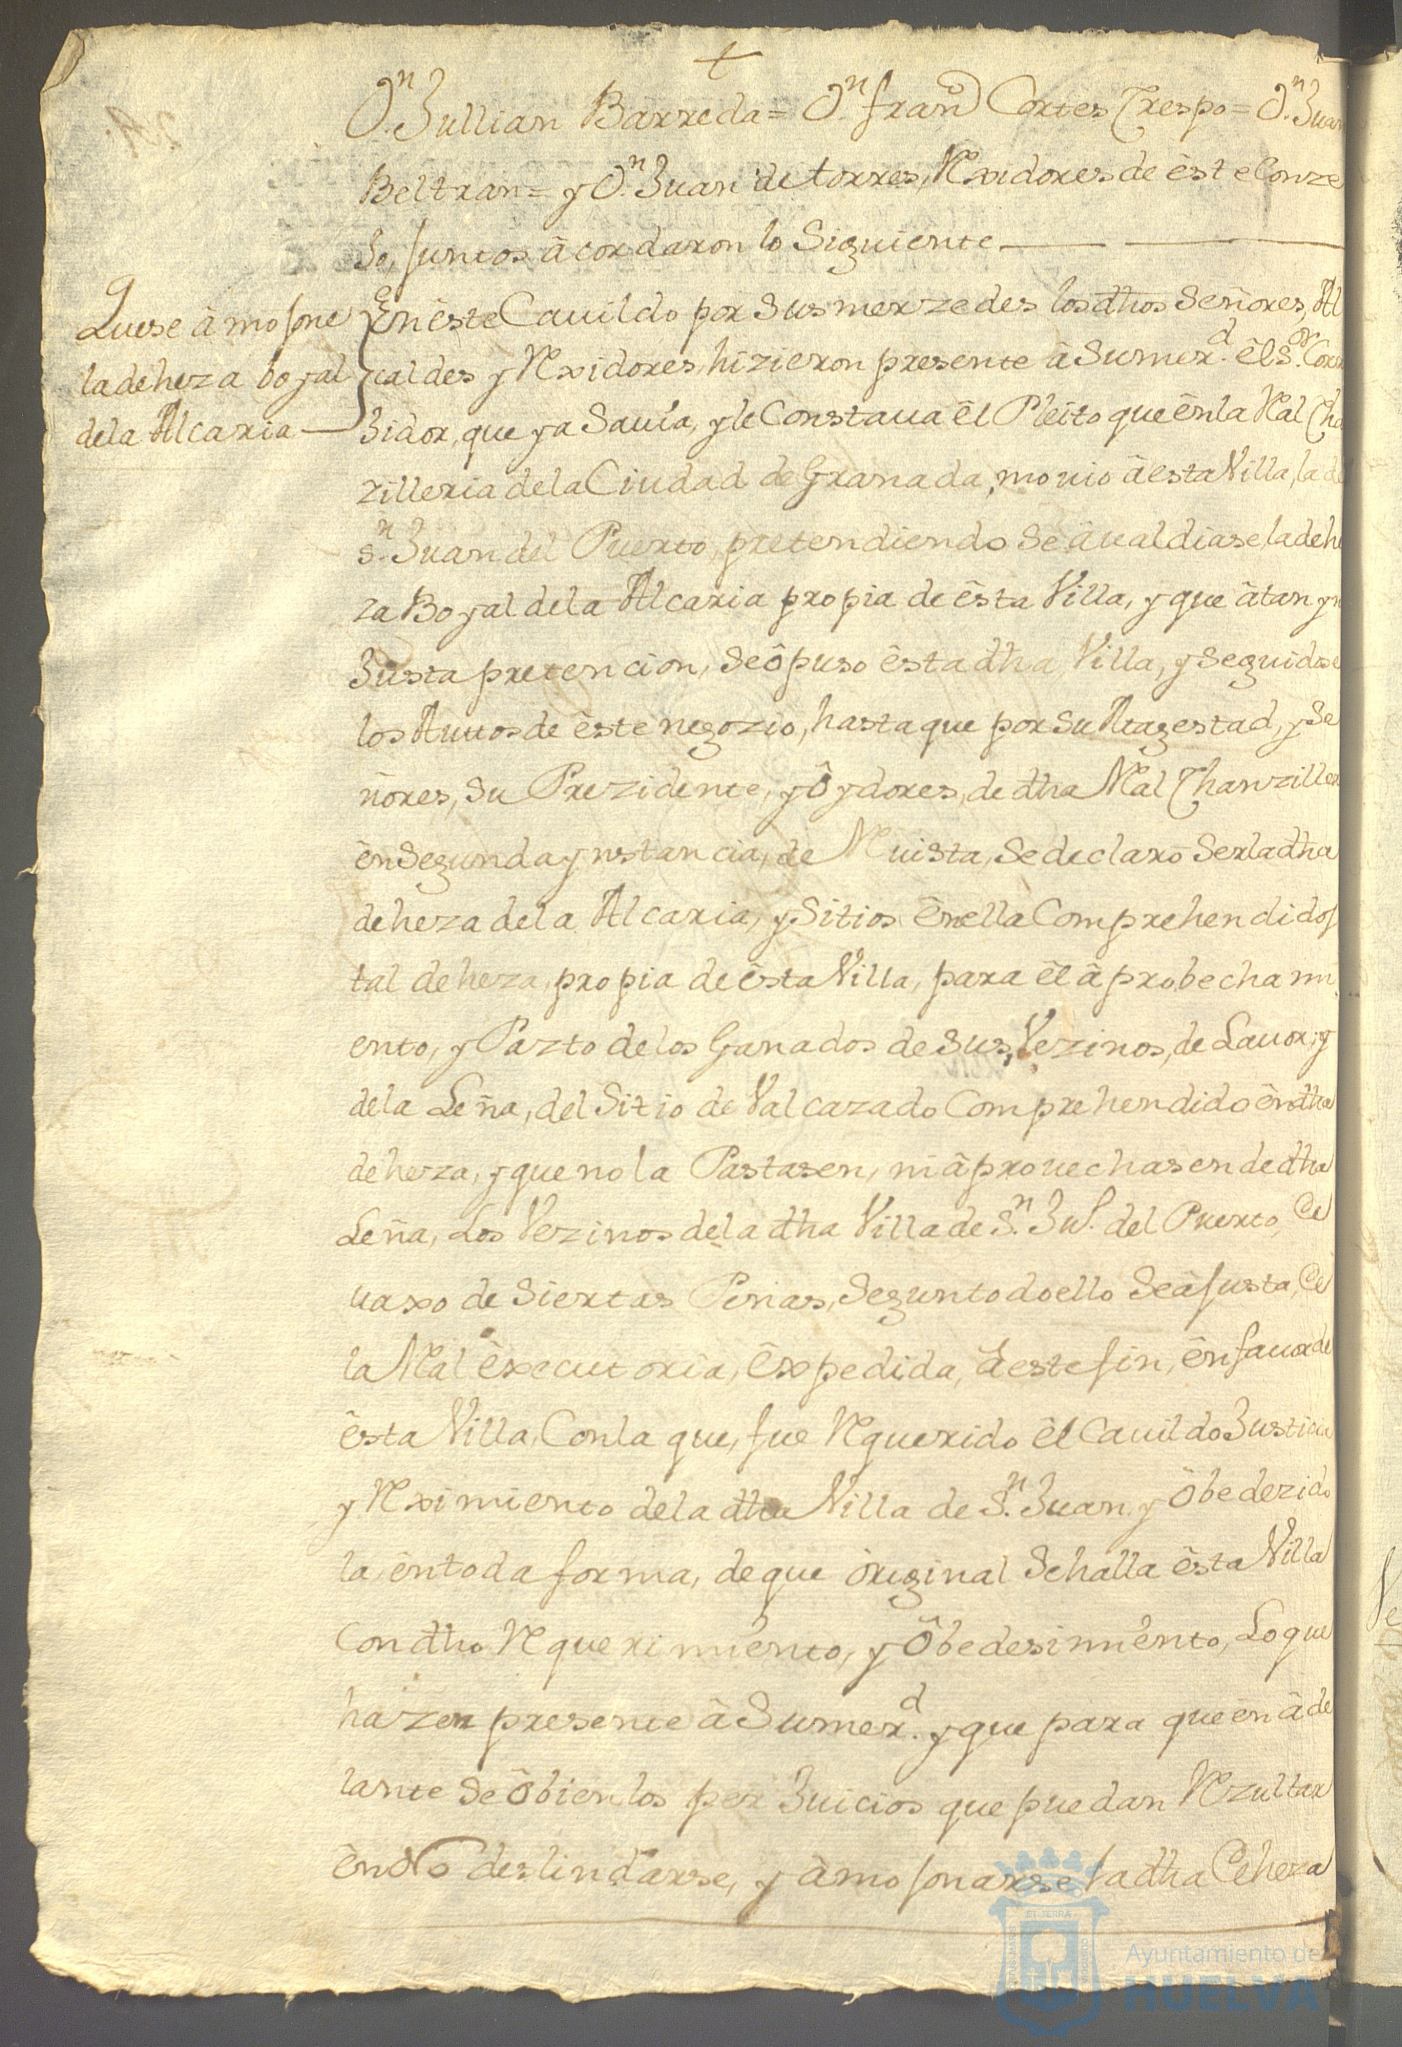 +
Dn. Jullian Barreda = Dn. franco Cortes Crespo = Dn. Juan
Beltran = y Dn. Juan de torres, Rexidores de êste Conze
Jo, juntos âcordaron lo Siguiente
Que se âmojone
la deheza boyal
de la Alcaria
En êste Cauildo por Sus merzedes los dhos Señores, Al
caldes y Rexidores, hizieron presente â Sumerd. êl Sor. Corre
Jidor, que ya Sauia, y le Constaua êl Pleito que ên la Real Cha
zilleria de la Ciudad de Granada, mouio â esta Villa, la de
Sn. Juan del Puerto, pretendiendo Se âualdiase, la dehe
za Boyal de la Alcaria propia de êsta Villa, y que â tan yn
Justa pretencion, Se ôpuso êsta dha Villa, y Seguidose
los Autos de êste negozio, hasta que por Su Magestad, y Se
ñores, Su Prezidente, y Ôydores, de dha Real Chanziller
ên Segunda ynstancia, de Reuista, Se declarô Ser la dha
deheza de la Alcaria, y Sitios ên ella Comprehendidos
tal deheza, propia de êsta Villa, para êl âprobechami
ento, y Pazto de los Ganados de Sus Vezinos, de Lauor, y
de la Leña, del Sitio de Valcazado Comprehendido ên dha
deheza, y que no la Pastasen, ni âprouechasen de dha
Leña, Los Vezinos de la dha Villa de Sn. Jun. del Puerto, De
uaxo de Siertas Penas, Segun todo ello Se âjusta, De
la Real êxecutoria, Êxpedida, â este fin, ên fauor de
êsta Villa, Con la que, fue Requerido êl Cauildo Justicia
y Reximiento de la dha Villa de Sn. Juan, y Ôbedezido
la, ên toda forma, de que ôriginal Se halla êsta Villa
Con dho Requerimiento, y Ôbedesimiento, Lo que
hazen presente â Sumerd. y que para que ên âde
lante Se ôbien los perJuicios que puedan Rezultar
ên No deslindarse, y âmojonarse la dha Deheza
Ayuntamiento de
HUELVA